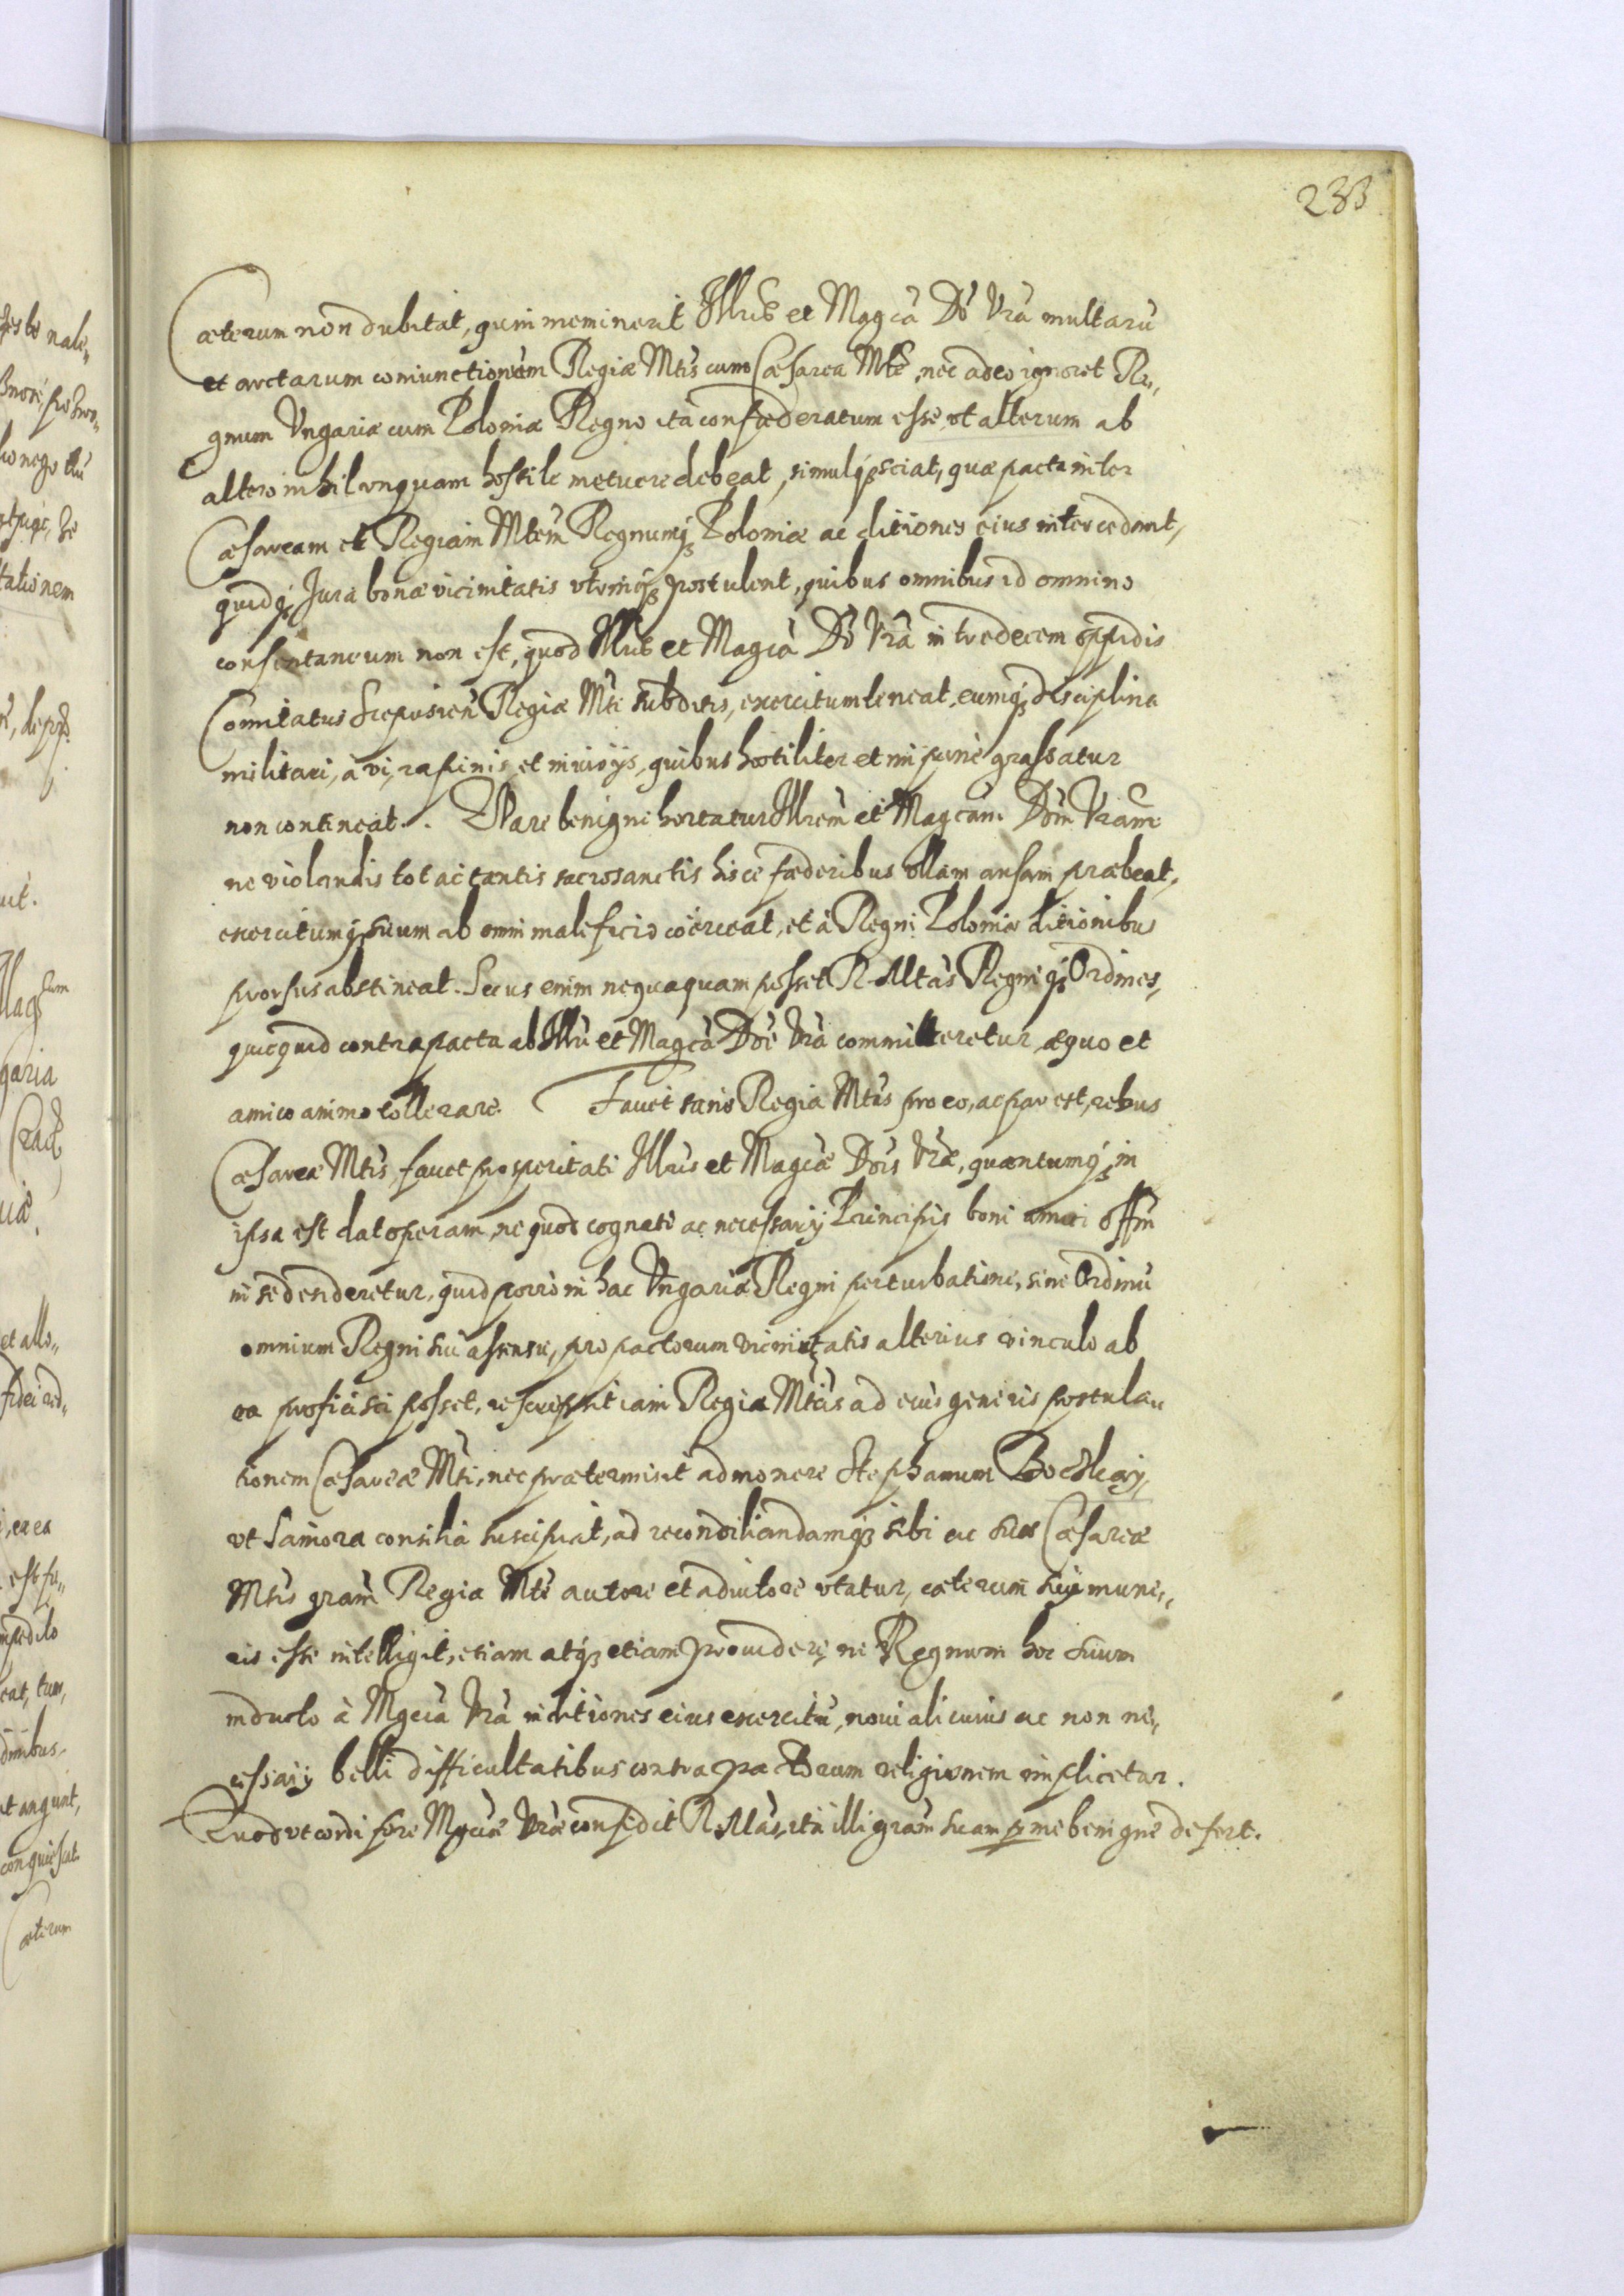 233
Cæterum non dubitat, quin meminerit Illris et Magca Do Vra multarū
et arctarum coniunctionum Regiæ Mtis cum Cæsarea Mte, nec adeo ignoret Re„
gnum Vngariæ cum Poloniæ Regno ita confœderatum esse, vt alterum ab
altero nihil vnquam hostile metuere debeat, simulqʒ sciat, quæ pacta inter
Cæsaream et Regiam Mtem Regnumqʒ Poloniæ ac ditiones eius intercedant,
quidqʒ Jura bonæ vicinitatis vtrinqʒ postulent, quibus omnibus id omnino
consentaneum non est, quod Illris et Magca Do Vra in tredecem oppidis
Comitatus Scepusien Regiæ Mti subditis, exercitum teneat, eumqʒ disciplina
militari, à vi, rapinis, et iniurijs, quibus hostiliter et impunè grassatur
non contineat. Quare benigne hortatur Illrem et Magcam Dom Vram
ne violandis tot ac tantis sacrosanctis hisce fæderibus vllam ansam præbeat,
exercitumqʒ suum ab omni maleficio coërceat, et à Regni Poloniæ ditionibus
prorsus abstineat. Secus enim nequaquam posset R. Mtas Regniqʒ Ordines,
quicquid contra pacta ab Illri et Magca Doe Vra committeretur, æquo et
amico animo tollerare. Fauet sane Regia Mtas pro eo, ac par est, rebus
Cæsareæ Mtis, fauet prosperitati Illris et Magcæ Dois Vræ, quantumqʒ in
ipsa est dat operam, ne quod cognati ac necessarij Principis boni amici offm
in se desideretur, quid porro in hac Vngariæ Regni perturbatione, sine Ordinū
omnium Regni sui assensu, pro pactorum vicinitatis alterius vinculo ab
ea proficisci posset, rescripsit iam Regia Mtas ad eius generis postula„
tionem Cæsareæ Mti, nec prætermisit admonere Stephanum Bochkaij,
vt saniora consilia suscipiat, ad reconciliandamqʒ sibi ac suis Cæsareæ
Mtis gram Regia Mte autore et adiutore vtatur, cæterum sui mune„
ris esse intelligit, etiam atqʒ etiam prouidere, ne Regnum hoc suum
inducto à Mgcia Vra in ditiones eius exercitu, noui alicuius ac non ne„
cessarij belli difficultatibus contra pactorum religionem implicetur.
Quod vt cordi fore Mgciæ Vræ confidit R. Mtas, ita illi gram suam p me benigne defert.